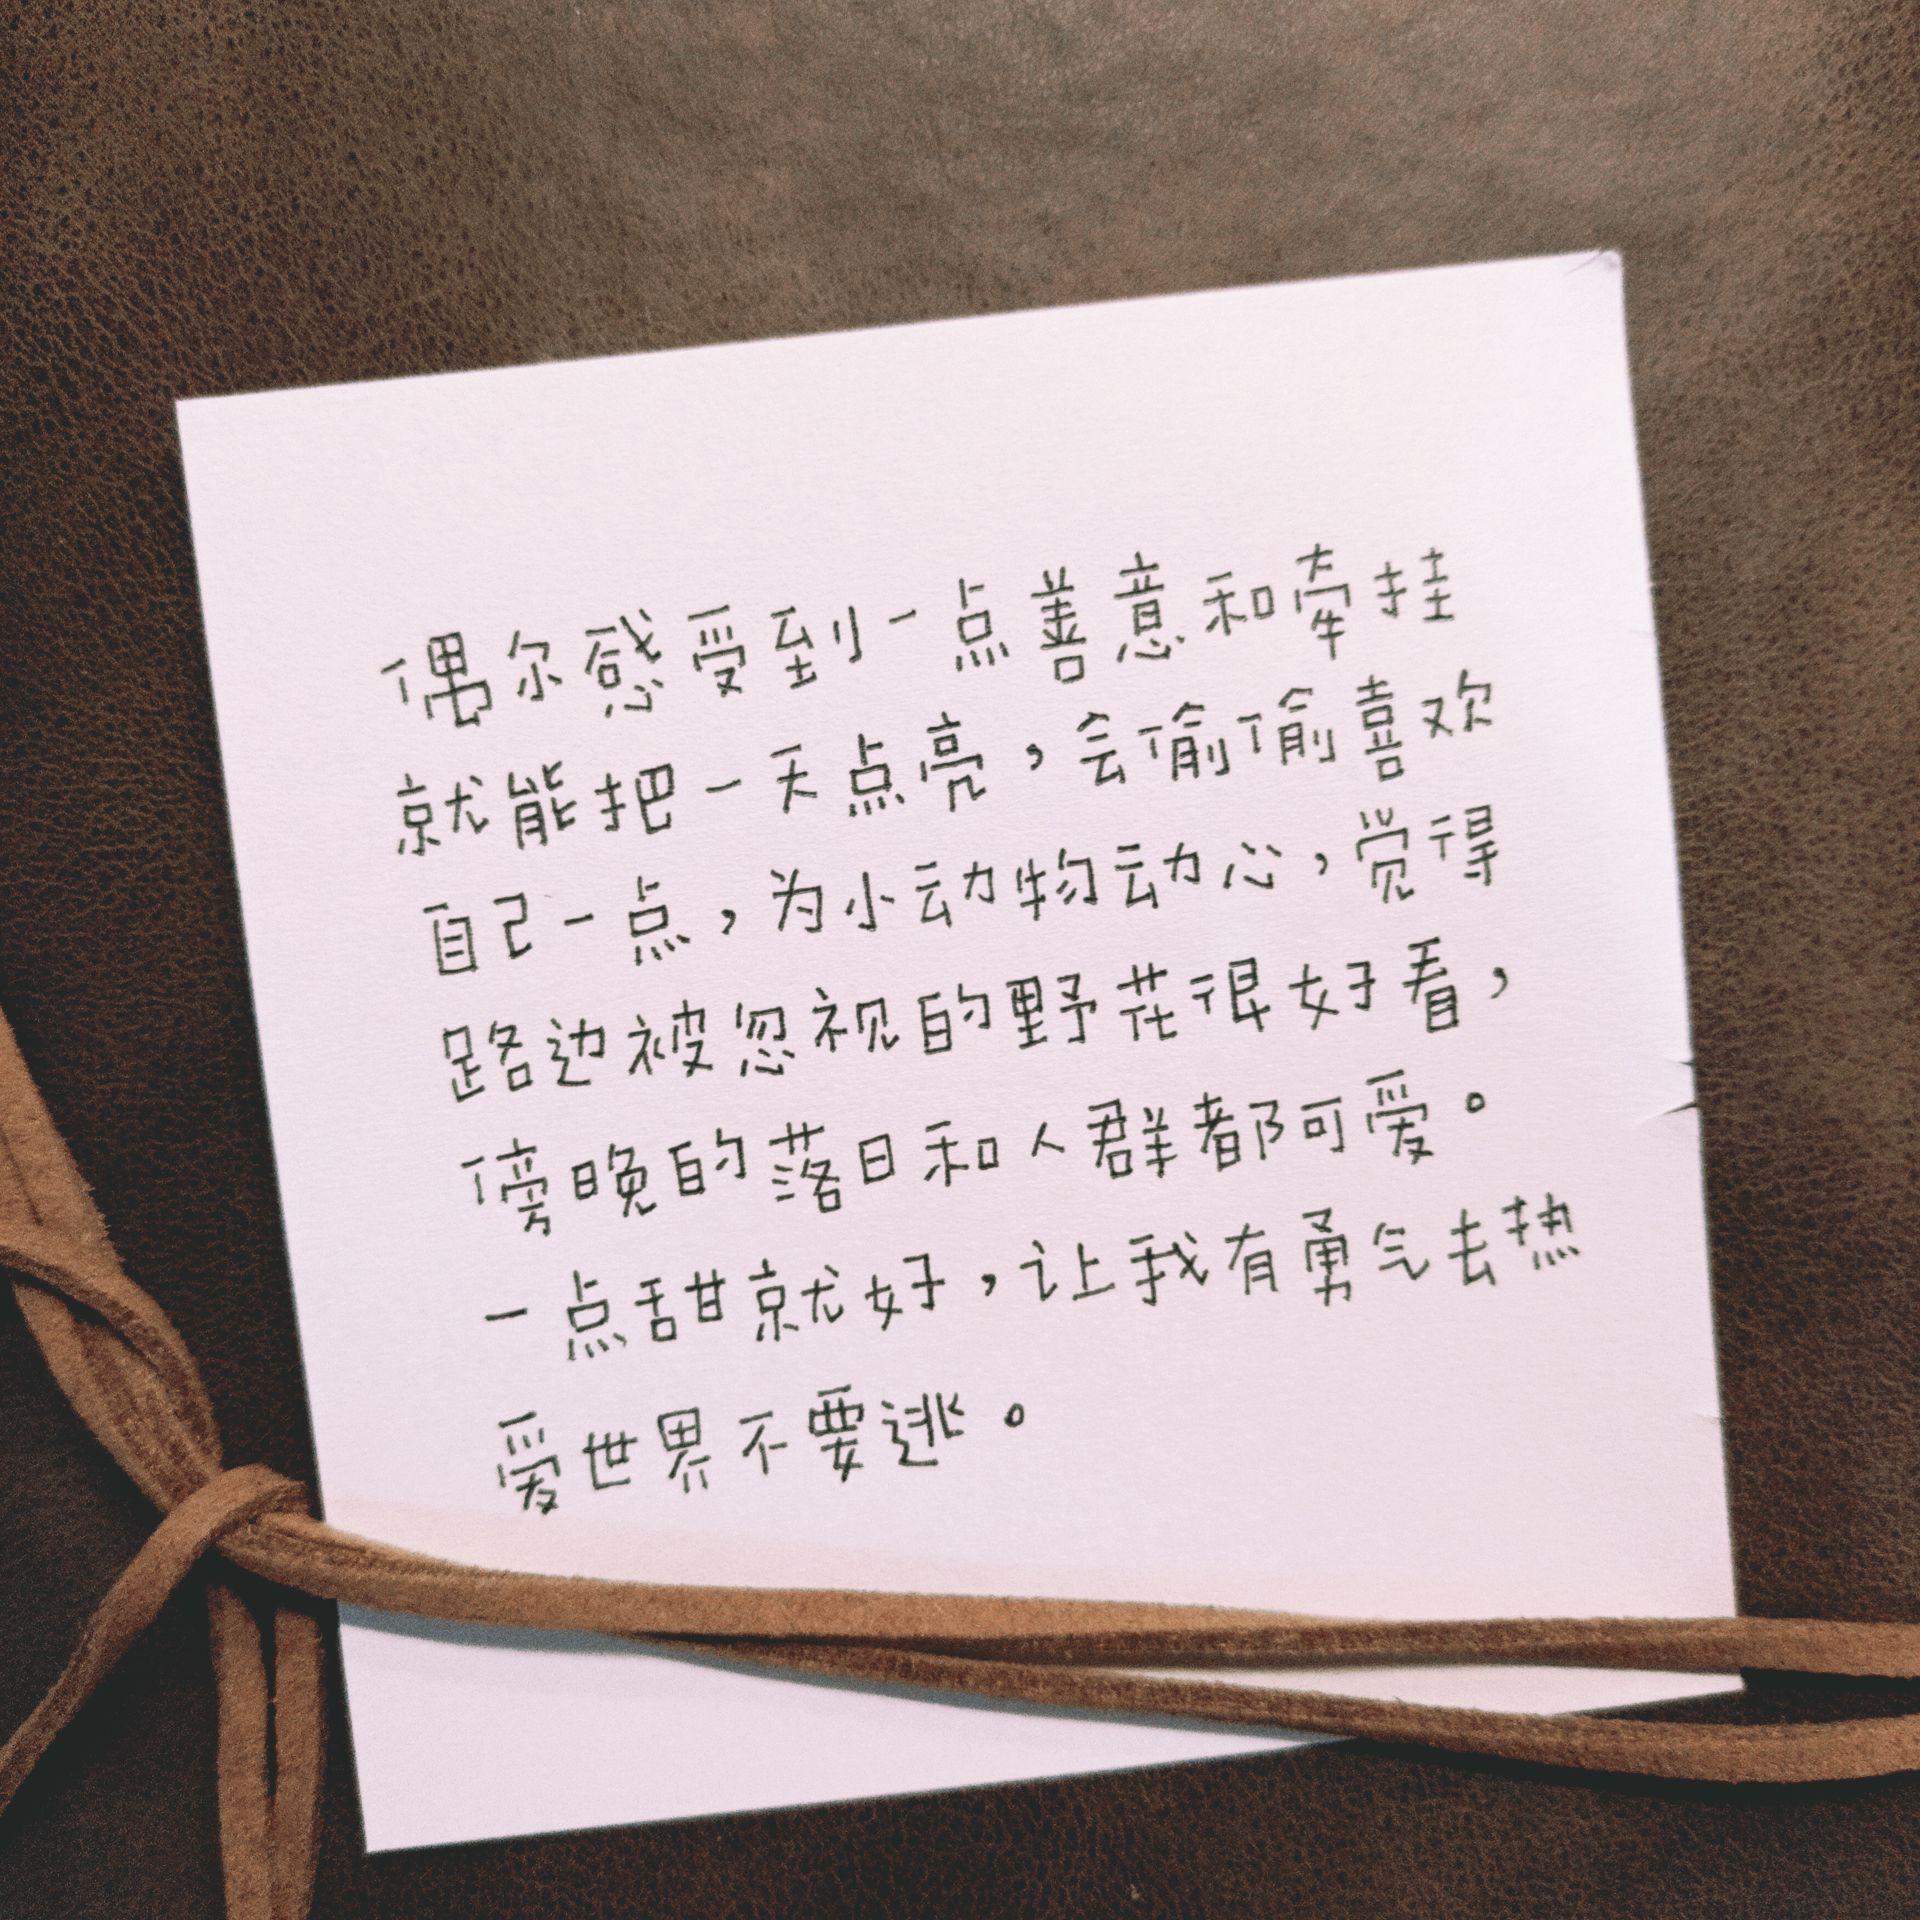 偶尔感受到一点善意和牵挂
就能把一天点亮，会偷偷喜欢
自己一点，为小动物动心，觉得
路边被忽视的野花很好看，
傍晚的落日和人群都可爱。
一点甜就好，让我有勇气去热
爱世界不要逃。